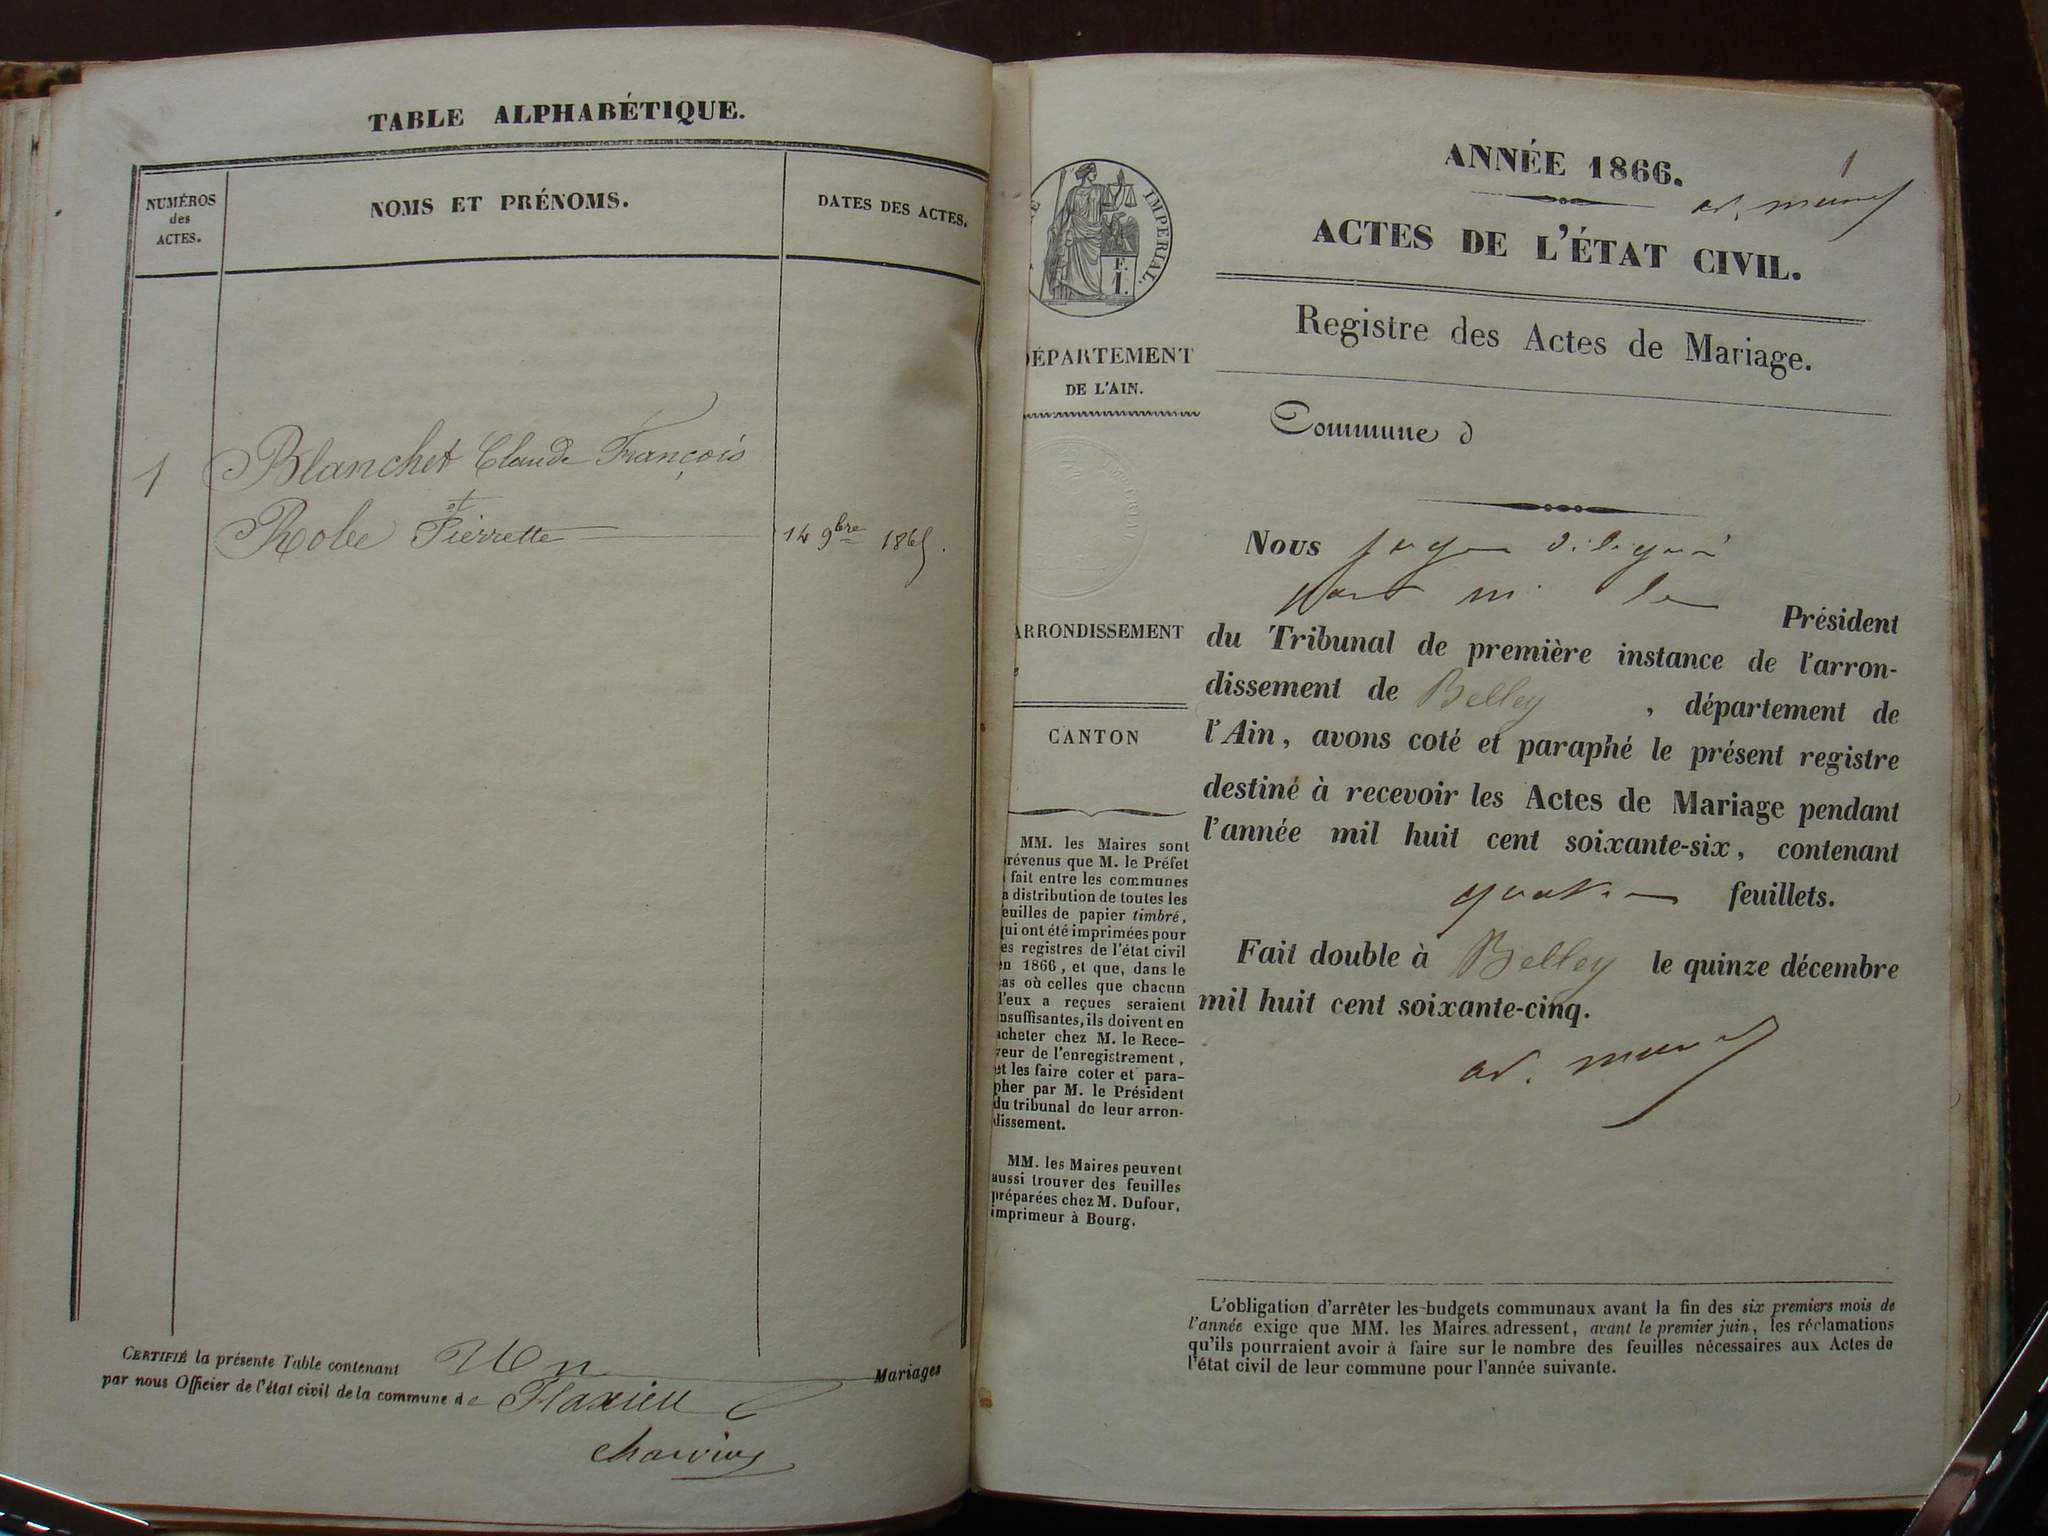 TABLE ALPHABÉTIQUE.
NUMÉROS
des
ACTES.
NOMS ET PRÉNOMS.
DATES DES ACTES.
1
Blanchet Claude François
et
Robe Pierrette
14 9bre 1865.
CERTIFIÉ la présente Table contenant Un Mariages
par nous Officier de l'état civil de la commune de Flaxieu
IMPERIAL.
F.
1.
DÉPARTEMENT
DE L'AIN.
ARRONDISSEMENT
CANTON
MM. les Maires sont
révenus que M. le Préfet
fait entre les communes
a distribution de toutes les
euilles de papier timbré,
ui ont été imprimées pour
es registres de l'état civil
en 1866, et que, dans le
as où celles que chacun
d'eux a reçues seraient
nsuffisantes, ils doivent en
acheter chez M. le Rece-
veur de l'enregistrement,
et les faire coter et para-
pher par M. le Président
du tribunal de leur arron-
dissement.
MM. les Maires peuvent
aussi trouver des feuilles
préparées chez M. Dufour,
imprimeur à Bourg.
1
ANNÉE 1866.
ACTES DE L'ÉTAT CIVIL.
Registre des Actes de Mariage.
Commune d
Nous juge délégué
par m le Président
du Tribunal de première instance de l'arron-
dissement de Belley , département de
l'Ain, avons coté et paraphé le présent registre
destiné à recevoir les Actes de Mariage pendant
l'année mil huit cent soixante-six, contenant
quatre feuillets.
Fait double à Belley le quinze décembre
mil huit cent soixante-cinq.
L'obligation d'arrêter les budgets communaux avant la fin des six premiers mois de
l'année exige que MM. les Maires adressent, avant le premier juin, les réclamations
qu'ils pourraient avoir à faire sur le nombre des feuilles nécessaires aux Actes de
l'état civil de leur commune pour l'année suivante.